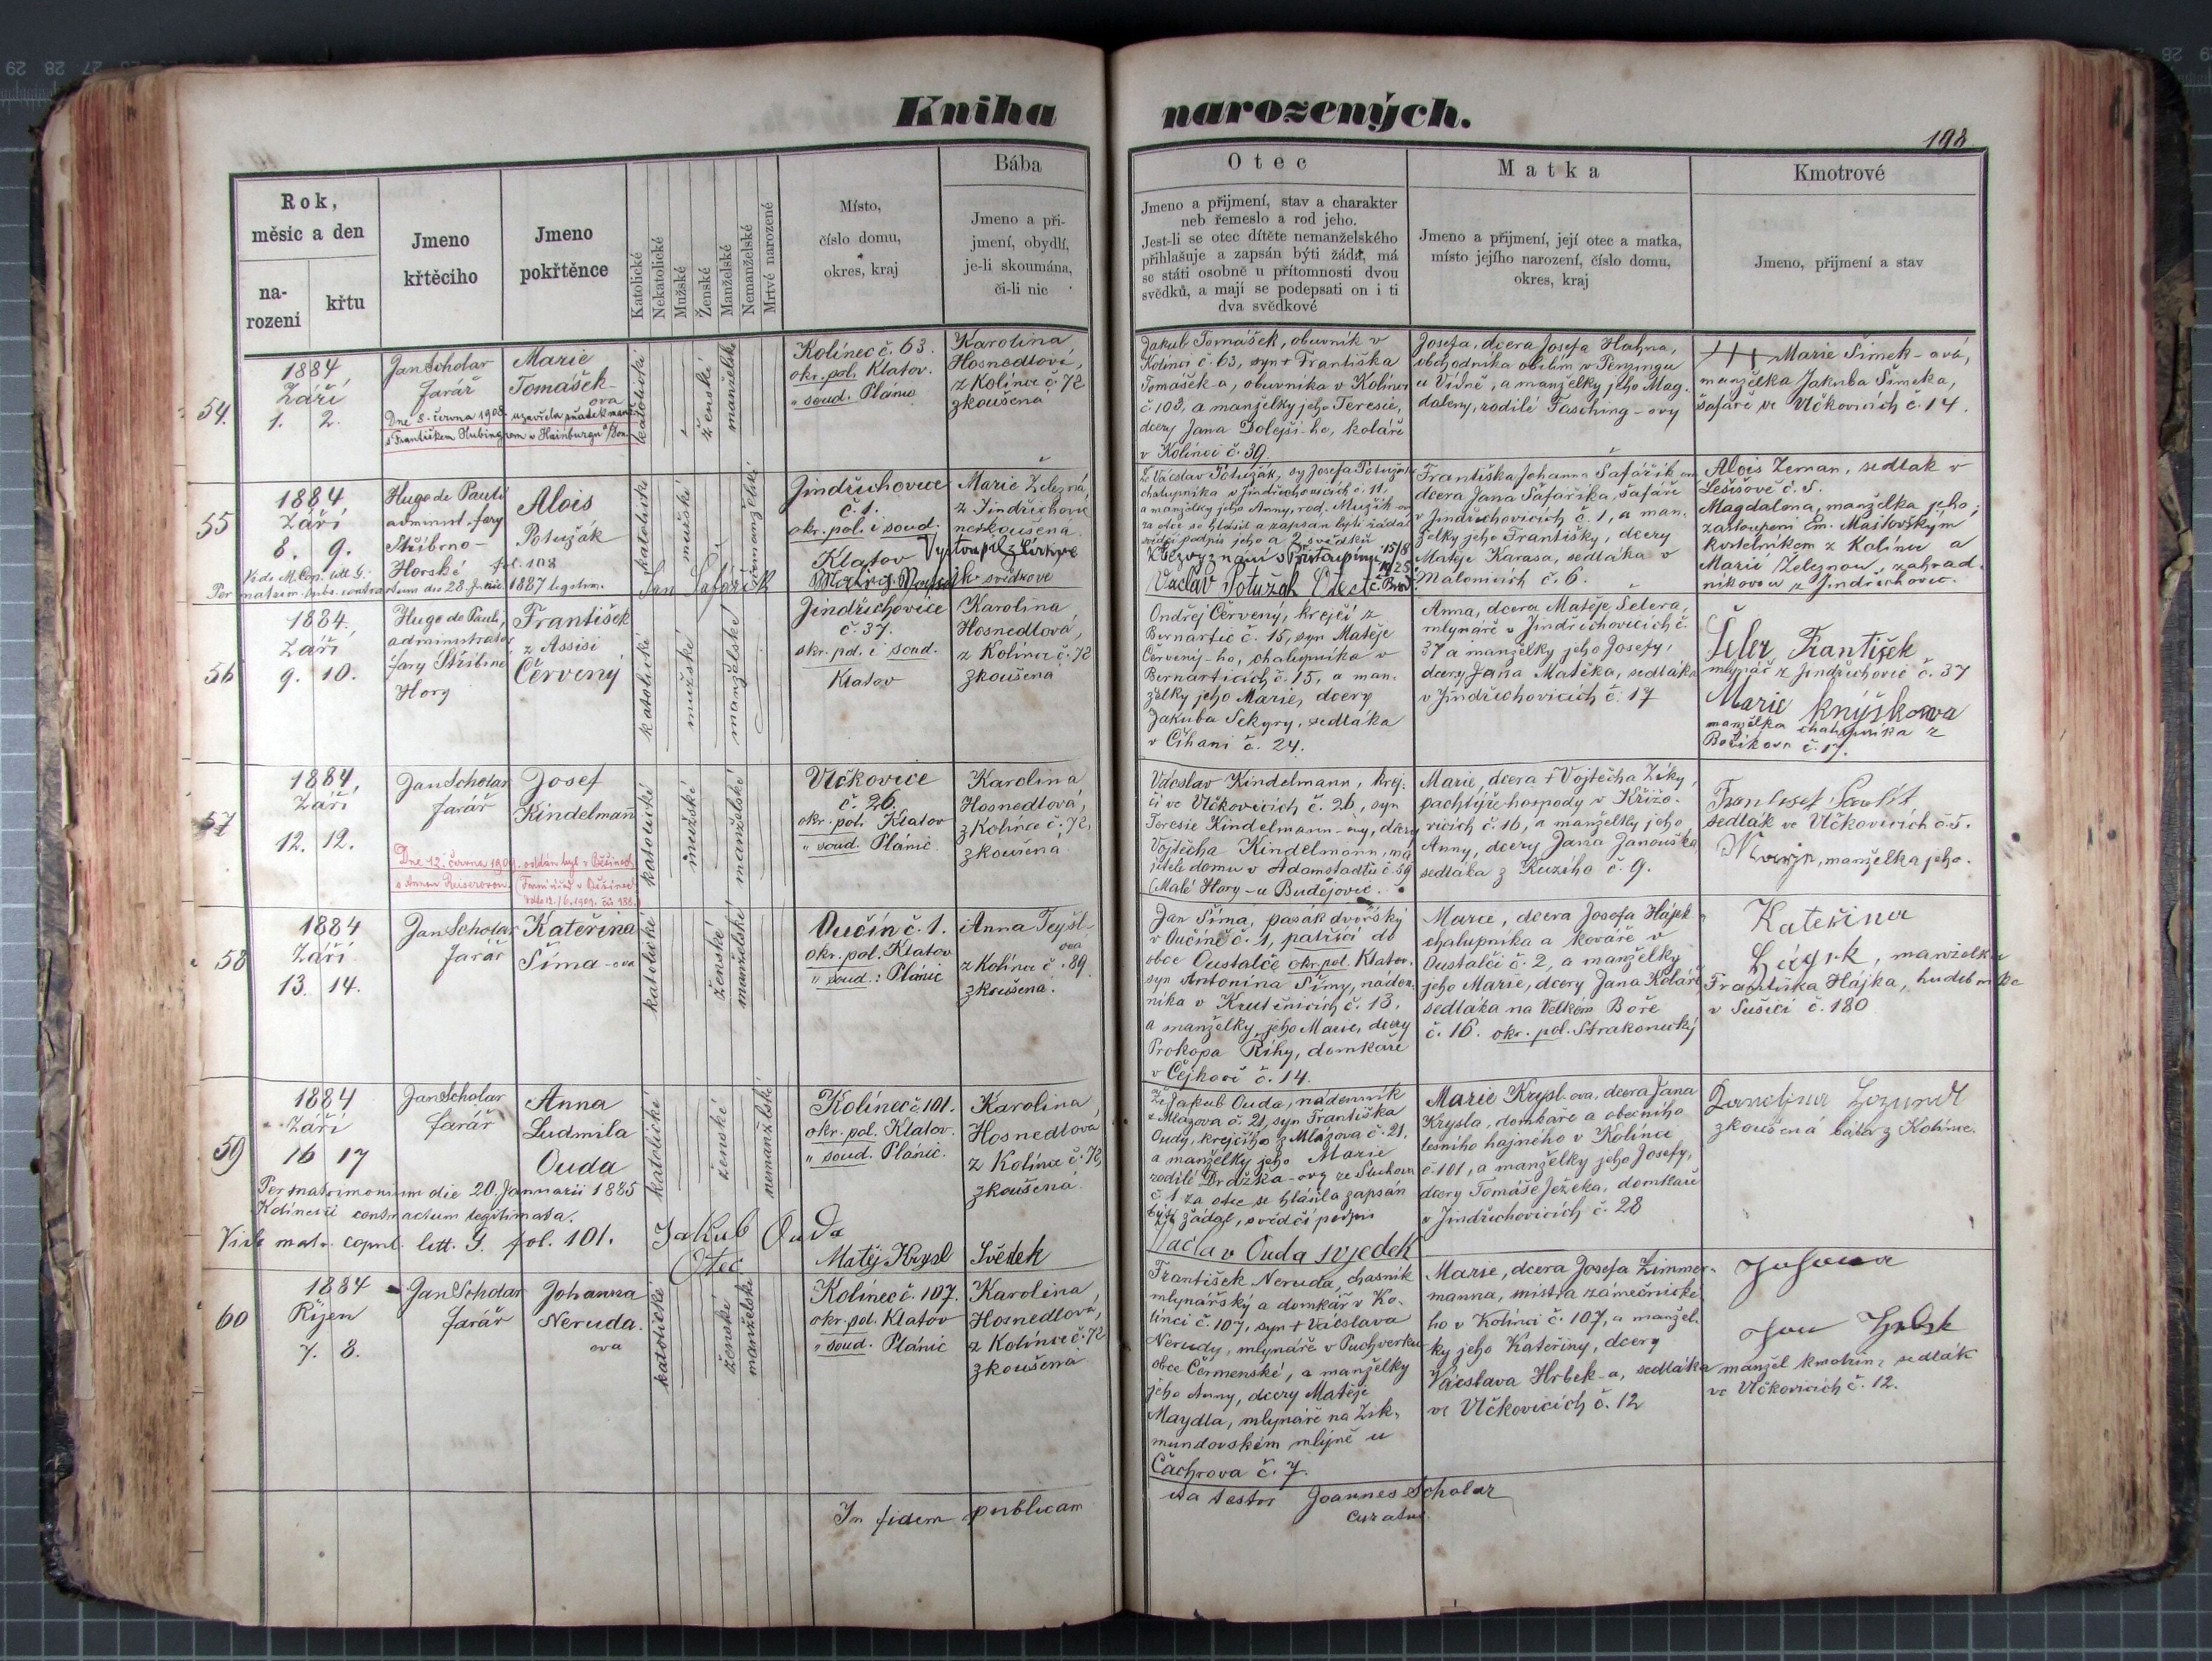 Kniha narozených.
198
Rok,
měsíc a den
na-
rození
křtu
Jmeno
křtěcího
Jmeno
pokřtěnce
Katolické
Nekatolické
Mužské
Ženské
Manželské
Nemanželské
Mrtvé narozené
Místo,
číslo domu,
okres, kraj
Bába
Jmeno a při-
jmení, obydlí,
je-li skoumána,
či-li nic
Otec
Jmeno a přijmení, stav a charakter
neb řemeslo a rod jeho.
Jest-li se otec dítěte nemanželského
přihlašuje a zapsán býti žádá, má
se státi osobně u přítomnosti dvou
svědků, a mají se podepsati on i ti
dva svědkové
Matka
Jmeno a přijmení, její otec a matka,
místo jejího narození, číslo domu,
okres, kraj
Kmotrové
Jmeno, přijmení a stav
54.
1884
Září
1. 2.
Jan Scholar
farář
Marie
Tomášek-
ova
Dne 8. června 1908 uzavřela sňatek manž.
s Františkem Hubingrem v Hainburgu a/Don.
katolické
ženské
manželské
Kolínec č. 63.
okr. pol. Klatov.
" soud. Plánic
Karolina
Hosnedlová,
z Kolince č. 72
zkoušená
Jakub Tomášek, obuvník v
Kolinci č. 63, syn + Františka
Tomášek-a, obuvníka v Kolinci
č. 103, a manželky jeho Teresie,
dcery Jana Dolejší-ho, koláře
v Kolinci č. 39
Josefa, dcera Josefa Hahna,
obchodníka obilím v Penzingu
u Vídně, a manželky jeho Mag-
daleny, rodilé Fasching-ovy
+++ Marie Šimek-ová,
manželka Jakuba Šimka,
šafáře ve Vlčkovicích č. 14.
55
1884
Září
8. 9.
Hugo de Pauli
administ. fary
Stříbro-
Horské
Alois
Potužák
fol. 108
Vide M. Cop. litt G.
Per matrim. subs. contractum die 28. Junii 1887 legitim.
katolické
mužské
nemanželské
Jan Šafařík
Jindřichovice
č. 1.
okr. pol. i soud.
Klatov
Vystoupil z církve
Marie Železná
z Jindřichovic
nezkoušená
svědkové
Že Václav Potužák, syn Josefa Potužáka
chalupníka v Jindřichovicích č. 11,
a manželky jeho Anny, rod. Mužík-ov
za otce se hlásil a zapsán býti žádal
svědčí podpis jeho a 2 svědků
Václav Potužák Otec
Františka Johanna Šafařík-ova
dcera Jana Šafaříka, šafáře
v Jindřichovicích č. 1, a man-
želky jeho Františky, dcery
Matěje Karasa, sedláka v
Malonicích č. 6.
Alois Zeman, sedlák v
Lešišově č. 5.
Magdalena, manželka jeho;
zastoupeni Em. Maštovským
kostelníkem z Kolince a
Marií Železnou, zahrad-
níkovou z Jindřichovic.
56
1884.
Září
9. 10.
Hugo de Pauli,
administrátor
fary Stříbrné
Hory
František
z Assisi
Červený
katolické
mužské
manželské
Jindřichovice
č. 37.
okr. pol. i soud.
Klatov
Karolina
Hosnedlová,
z Kolince č. 72
zkoušená
Ondřej Červený, krejčí z
Bernartic č. 15, syn Matěje
Červený-ho, chalupníka v
Bernarticích č. 15, a man-
želky jeho Marie, dcery
Jakuba Sekyry, sedláka
v Číhani č. 24.
Anna, dcera Matěje Šelera,
mlynáře v Jindřichovicích č.
37 a manželky jeho Josefy,
dcery Jana Matička, sedláka
v Jindřichovicích č. 17
Šeler František
mlynář z Jindřichovic č. 37
Marie Knýškova
manželka chalupníka z
Božíkova č. 17.
57
1884,
Září
12. 12.
Jan Scholar
farář
Josef
Kindelmann
Dne 12. června 1909. oddán byl v
s Annou Reiserovou.
katolické
mužské
manželské
Vlčkovice
č. 26.
okr. pol. Klatov
" soud. Plánic
Karolina
Hosnedlová,
z Kolince č. 72,
zkoušená
Václav Kindelmann, krej-
čí ve Vlčkovicích č. 26, syn
Teresie Kindelmann-ovy, dcery
Vojtěcha Kindelmann, ma-
jitele domu v Adamstadtlu č. 59
(Malé Hory-u Budějovic.
Marie, dcera + Vojtěcha Ziky,
pachtýře hospody v Křížo-
vicích č. 16, a manželky jeho
Anny, dcery Jana Janouška
sedláka z Kuzího č. 9.
sedlák ve Vlčkovicích č. 5.
manželka jeho.
58
1884
Září
13. 14.
Jan Scholar
farář
Kateřina
Šíma-ova
katolické
ženské
manželské
Oučín č. 1.
okr. pol. Klatov
" soud.: Plánic
Anna Teyšl-
ova
z Kolince č. 89
zkoušená.
Jan Šíma, pasák dvorský
v Oučíně č. 1, patřící do
obce Oustalče okr. pol. Klatov.
syn Antonína Šímy, náden-
níka v Krutěnicích č. 13,
a manželky jeho Marie, dcery
Prokopa Řihy, domkaře
v Čejkově č. 14.
Marie, dcera Josefa Hájek
chalupníka a kováře v
Oustalči č. 2, a manželky
jeho Marie, dcery Jana Koláře
sedláka na Velkém Boře
č. 16. okr. pol. Strakonický
Kateřina
Hájek, manželka
Františka Hájka, hudebníka
v Sušici č. 180
59
1884
Září
16 17
Jan Scholar
farář
Anna
Ludmila
Ouda
Per matrimonium die 20. Januarii 1885
Kolinecii contractum legitimata.
Vide matr. copul. litt. G. fol. 101.
katolické
ženské
nemanželské
Jakub Ouda
Otec
Kolínec č. 101.
okr. pol. Klatov.
" soud. Plánic.
Matěj Krysl Svědek
Karolina,
Hosnedlova
z Kolince č. 72,
zkoušená.
Že Jakub Ouda, nádenník
z Mlázova č. 21, syn Františka
Oudy, krejčího z Mlázova č. 21,
a manželky jeho Marie
rodilé Brožka-ovy ze Suchova
č. 1 za otce se hlásil a zapsán
býti žádal, svědčí podpis
Václav Ouda svjedek
Marie Krysl-ova, dcera Jana
Krysla, domkaře a obecního
lesního hajného v Kolinci
č. 101, a manželky jeho Josefy,
dcery Tomáše Ježeka, domkaře
v Jindřichovicích č. 28
zkoušená bába z Kolince.
60
1884
Říjen
7. 8.
Jan Scholar
farář
Johanna
Neruda
ova
katolické
ženské
manželské
Kolínec č. 107.
okr. pol. Klatov
" soud. Plánic
Karolina,
Hosnedlova,
z Kolince č. 72
zkoušená
František Neruda, chasník
mlynářský a domkář v Ko-
linci č. 107, syn + Václava
Nerudy, mlynáře v Puchverku
obce Čermenské, a manželky
jeho Anny, dcery Matěje
Maydla, mlynáře na Zik-
mundovském mlýně u
Čachrova č. 7.
Marie, dcera Josefa Zimmer-
manna, mistra zámečnické-
ho v Kolinci č. 107, a manžel-
ky jeho Kateřiny, dcery
Václava Hrbek-a, sedláka
ve Vlčkovicích č. 12
Johana
Jan Hrbek
manžel kmotřin, sedlák
ve Vlčkovicích č. 12.
In fidem publicam
ita testor Joannes Scholar
curatus.